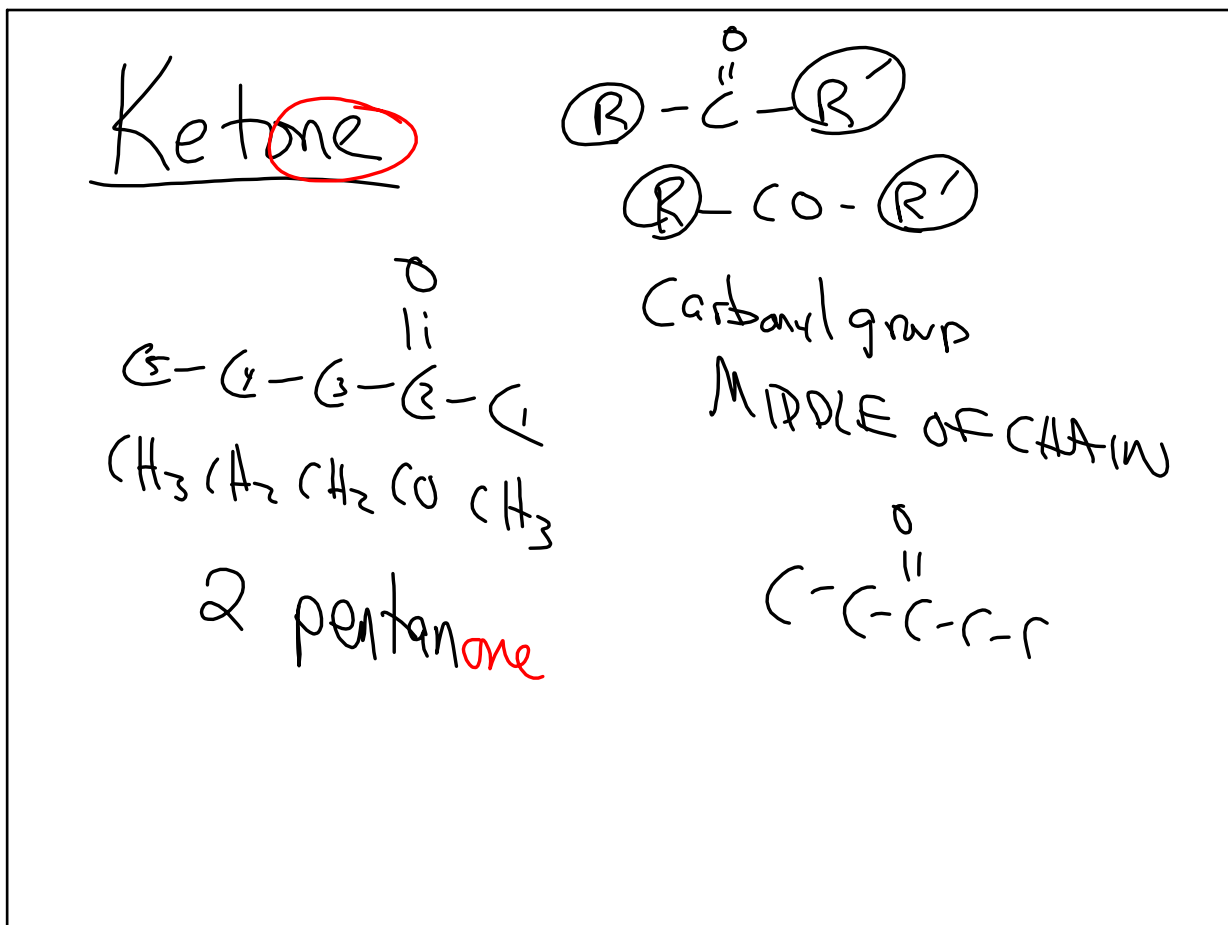 Ketone
O
||
R - C - R′
R - CO - R′
Carbonyl group
MIDDLE OF CHAIN
O
||
C5 - C4 - C3 - C2 - C1
CH3 CH2 CH2 CO CH3
2 pentanone
O
||
C - C - C - C - C